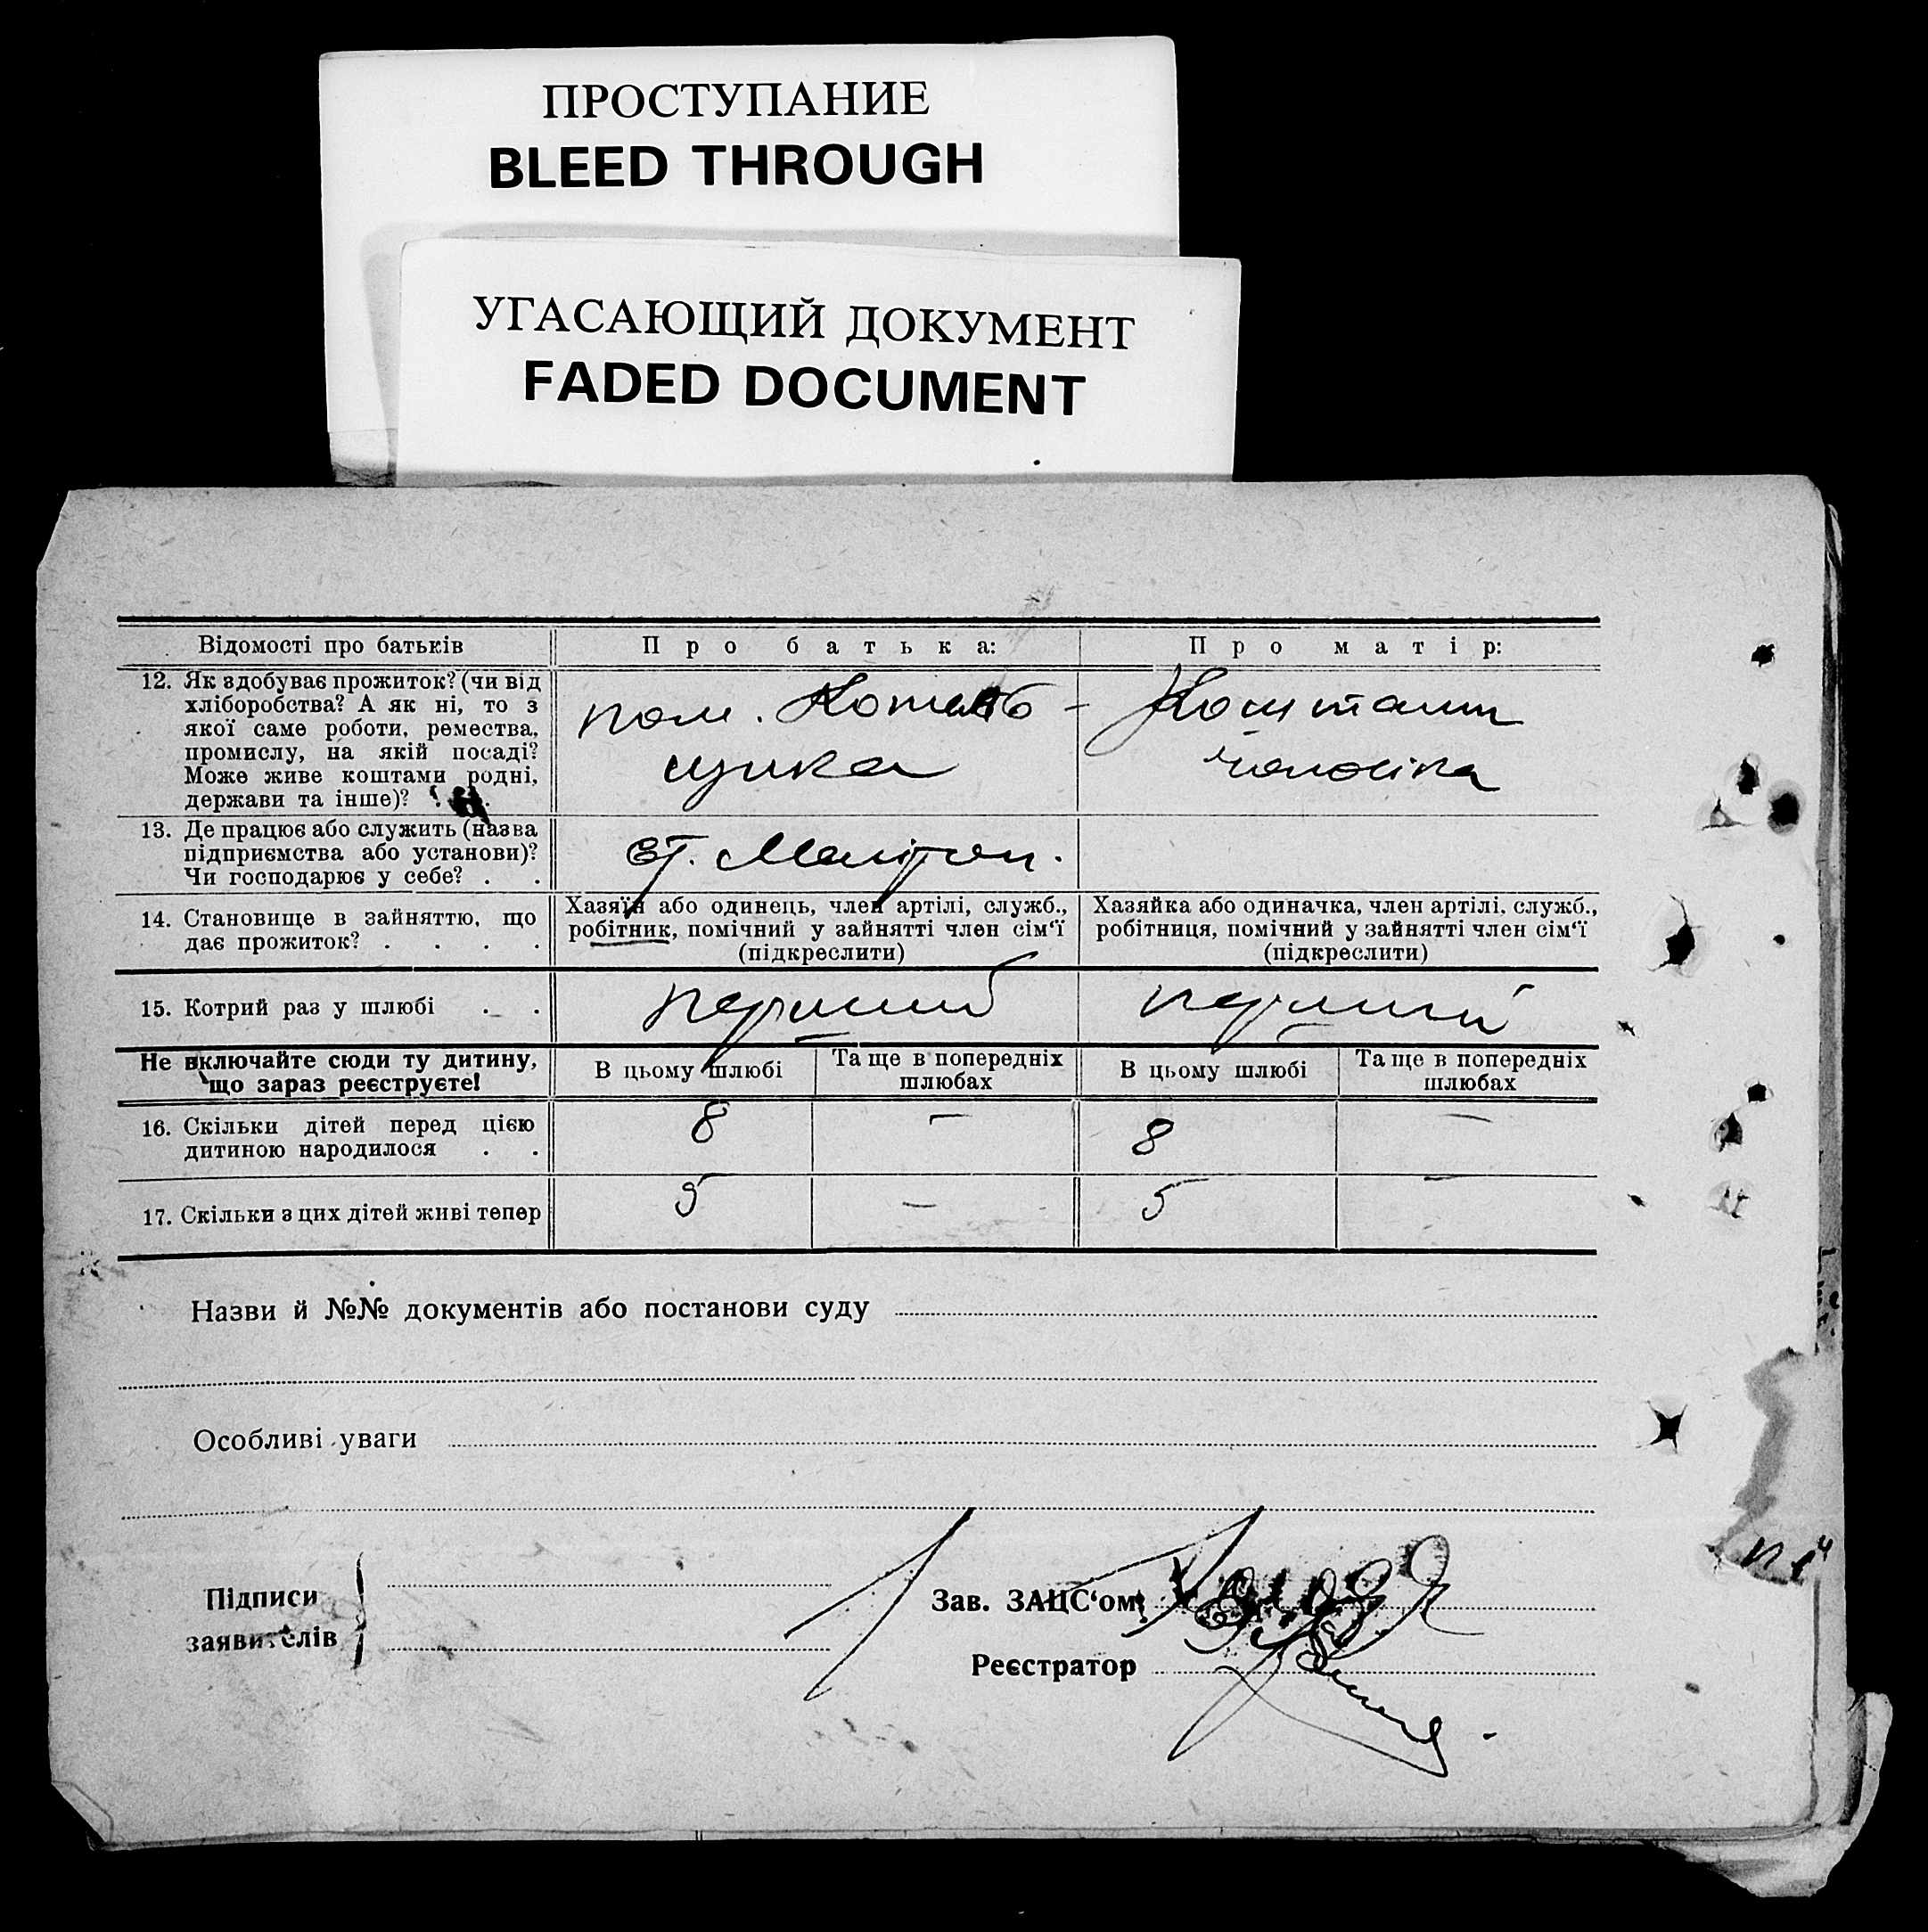 ПРОСТУПАНИЕ
BLEED THROUGH
УГАСАЮЩИЙ ДОКУМЕНТ
FADED DOCUMENT
Відомості про батьків
Про батька:
Про матір:
12. Як здобуває прожиток? (чи від
хліборобства? А як ні, то з
якої саме роботи, ремества,
промислу, на якій посаді?
Може живе коштами родні,
держави та інше)?
пом. Котель-
щика
Коштами
чоловіка
13. Де працює або служить (назва
підприємства або установи)?
Чи господарює у себе? . .
ст.
14. Становище в зайняттю, що
дає прожиток? . . . .
Хазяїн або одинець, член артілі, служб.,
робітник, помічний у зайнятті член сім'ї
(підкреслити)
Хазяйка або одиначка, член артілі, служб.,
робітниця, помічний у зайнятті член сім'ї
(підкреслити)
15. Котрий раз у шлюбі . .
перший
перший
Не включайте сюди ту дитину,
що зараз реєструєте!
В цьому шлюбі
Та ще в попередніх
шлюбах
В цьому шлюбі
Та ще в попередніх
шлюбах
16. Скільки дітей перед цією
дитиною народилося . .
8
—
8
—
17. Скільки з цих дітей живі тепер
5
—
5
—
Назви й №№ документів або постанови суду
Особливі уваги
Підписи
заявителів
Зав. ЗАЦС'ом
Реєстратор